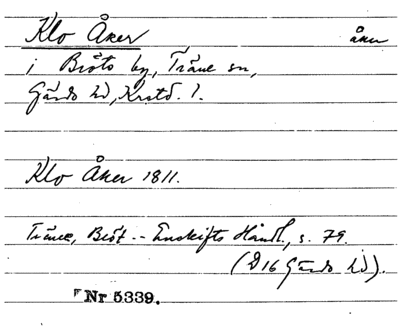 Klo Åker åker
i Bröts by, Träne sn,
Gärds hd, Krstd. l.
Klo Åker 1811.
Träne, Bröt -- Enskifts Handl., s. 79.
(D16 Gärds hd).
Nr 5339.